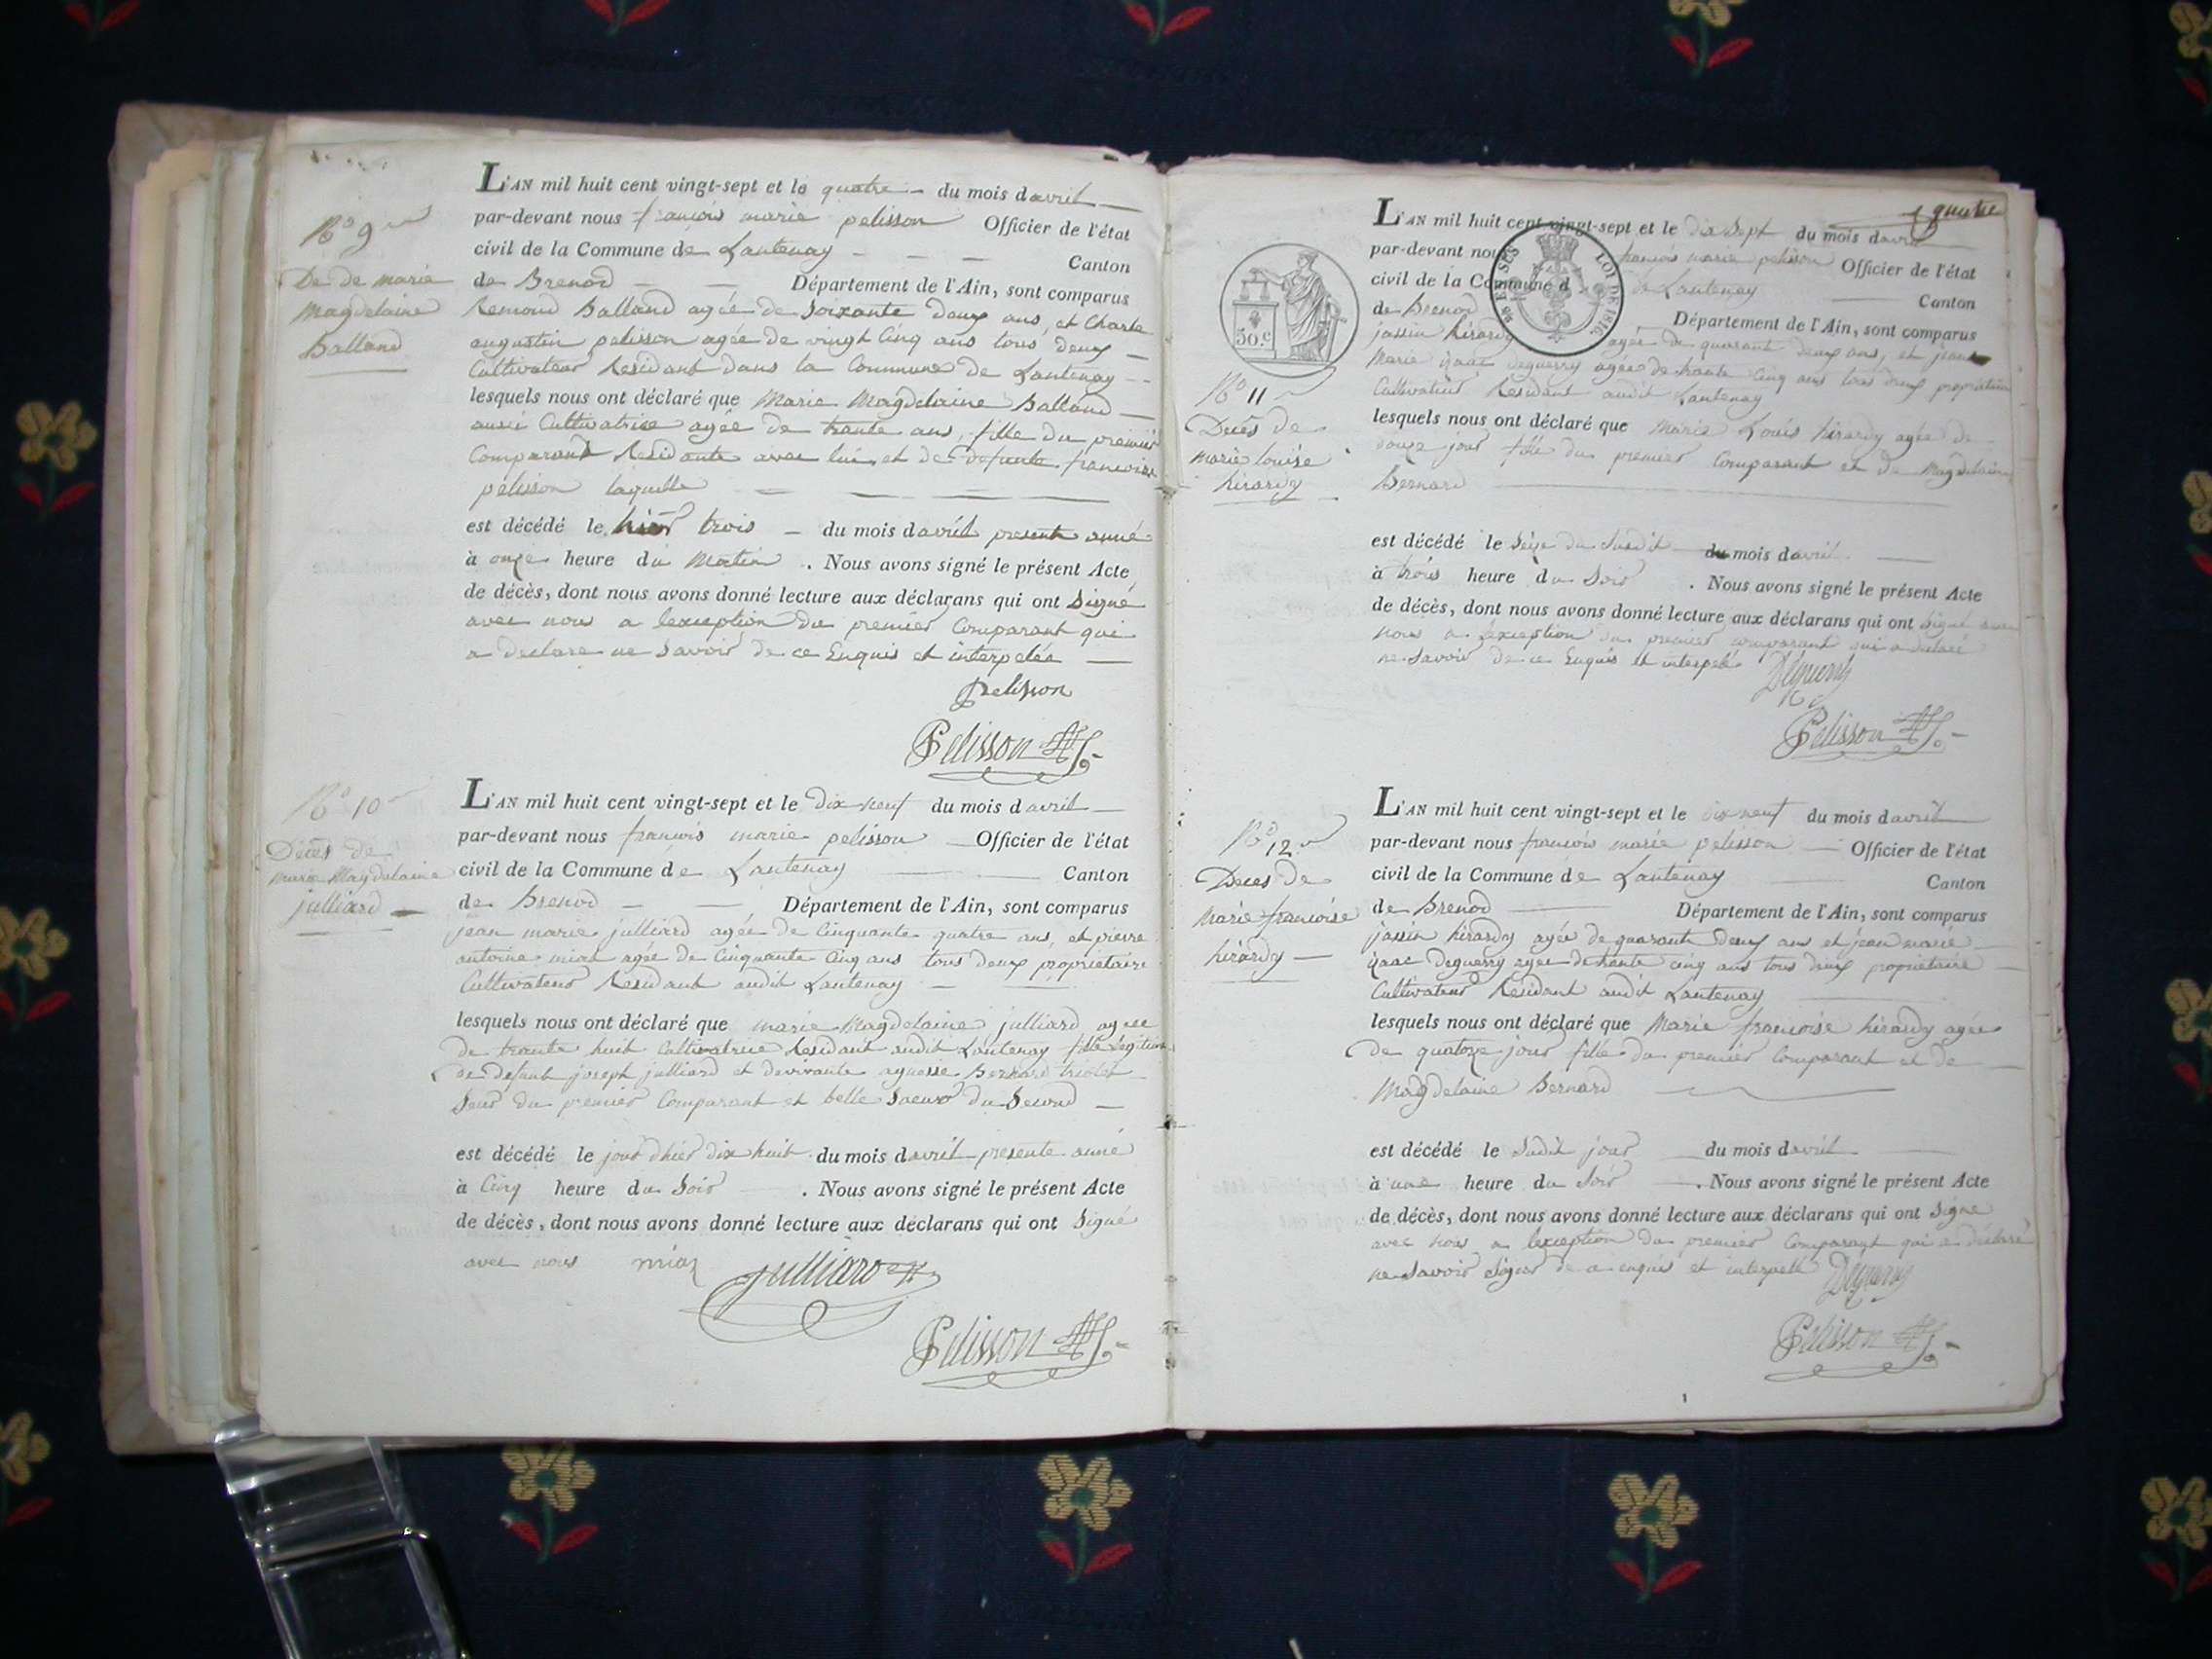 N° 9
De de marie
Magdelaine
Balland
L'AN mil huit cent vingt-sept et le quatre — du mois davril —
par-devant nous francois marie pelisson Officier de l'état
civil de la Commune de Lantenay — — — Canton
de Brenod — — Département de l'Ain, sont comparus
Remond Balland agée de Soixante deux ans, et Charle
augustin pelisson agée de vingt Cinq ans tous deux —
Cultivateur Residant dans la Commune de Lantenay —
lesquels nous ont déclaré que Marie Magdelaine Balland —
aussi Cultivatrice agée de trante ans, fille du premier
Comparant Residante avec lui, et de defunte francoise
pelisson laquelle — — — —
est décédé le hier trois — du mois davril presente anné
à onze heure du Matin . Nous avons signé le présent Acte
de décès, dont nous avons donné lecture aux déclarans qui ont Signé
avec nous a lexception du premier Comparant qui
a declare ne Savoir de ce Enquis et interpelée —
Pelisson
Pelisson
N° 10
Décès de
marie Magdelaine
julliard —
L'AN mil huit cent vingt-sept et le Dix-neuf du mois davril —
par-devant nous francois marie pelisson — Officier de l'état
civil de la Commune de Lantenay — Canton
de Brenod — — Département de l'Ain, sont comparus
jean marie julliard agée de Cinquante quatre ans, et pierre
antoine miaz agée de Cinquante Cinq ans tous deux proprietaire
Cultivateur Residant audit Lantenay —
lesquels nous ont déclaré que marie Magdelaine julliard agee
de trante huit Cultivatrice Residant audit Lantenay fille Legitime
de defunt joseph julliard et devivante agnesse Bernard
Seur du premier Comparant et belle Saeur du Second —
est décédé le jour dhier dix huit du mois davril presente anné
à Cinq heure du Soir . Nous avons signé le présent Acte
de décès, dont nous avons donné lecture aux déclarans qui ont Signé
avec nous miaz
Julliard
Pelisson
quatre
50.c
EN SUS
LOI DE 1816.
N° 11
Decès de
marie louise
hirardy
L'AN mil huit cent vingt-sept et le dix Sept du mois davril
par-devant nous francois marie pelisson Officier de l'état
civil de la Commune de Lantenay — Canton
de Brenod Département de l'Ain, sont comparus
jassin hirardy agée de quarante deux ans, et jean
Marie isaac deguerry agée de trante Cinq ans tous deux proprietaire
Cultivateur Residant audit Lantenay
lesquels nous ont déclaré que Marie Louis hirardy agée de
douze jour fille du premier Comparant et de Magdelaine
Bernard —
est décédé le Seize du Susdit du mois davril —
à trois heure du Soir . Nous avons signé le présent Acte
de décès, dont nous avons donné lecture aux déclarans qui ont Signé avec
nous a lexception du premier comparant qui a declaré
ne Savoir de ce Enquis et interpelé Deguerry
Pelisson
N° 12
Deces de
Marie francoise
hirardy —
L'AN mil huit cent vingt-sept et le dix neuf du mois davril
par-devant nous francois marie pelisson — Officier de l'état
civil de la Commune de Lantenay — Canton
de Brenod — Département de l'Ain, sont comparus
jassin hirardy agée de quarante deux ans et jean marie —
isaac Deguerry agee de trante cinq ans tous deux proprietaire —
Cultivateur Residant audit Lantenay —
lesquels nous ont déclaré que Marie francoise hirardy agée
de quatoze jour fille du premier Comparant et de —
Magdelaine Bernard —
est décédé le Sudit jour — du mois davril —
à une heure du Soir — . Nous avons signé le présent Acte
de décès, dont nous avons donné lecture aux déclarans qui ont Signe
avec nous a lexception du premier Comparant qui a déclaré
ne Savoir Signer de ce enquis et interpellé Deguerry
Pelisson